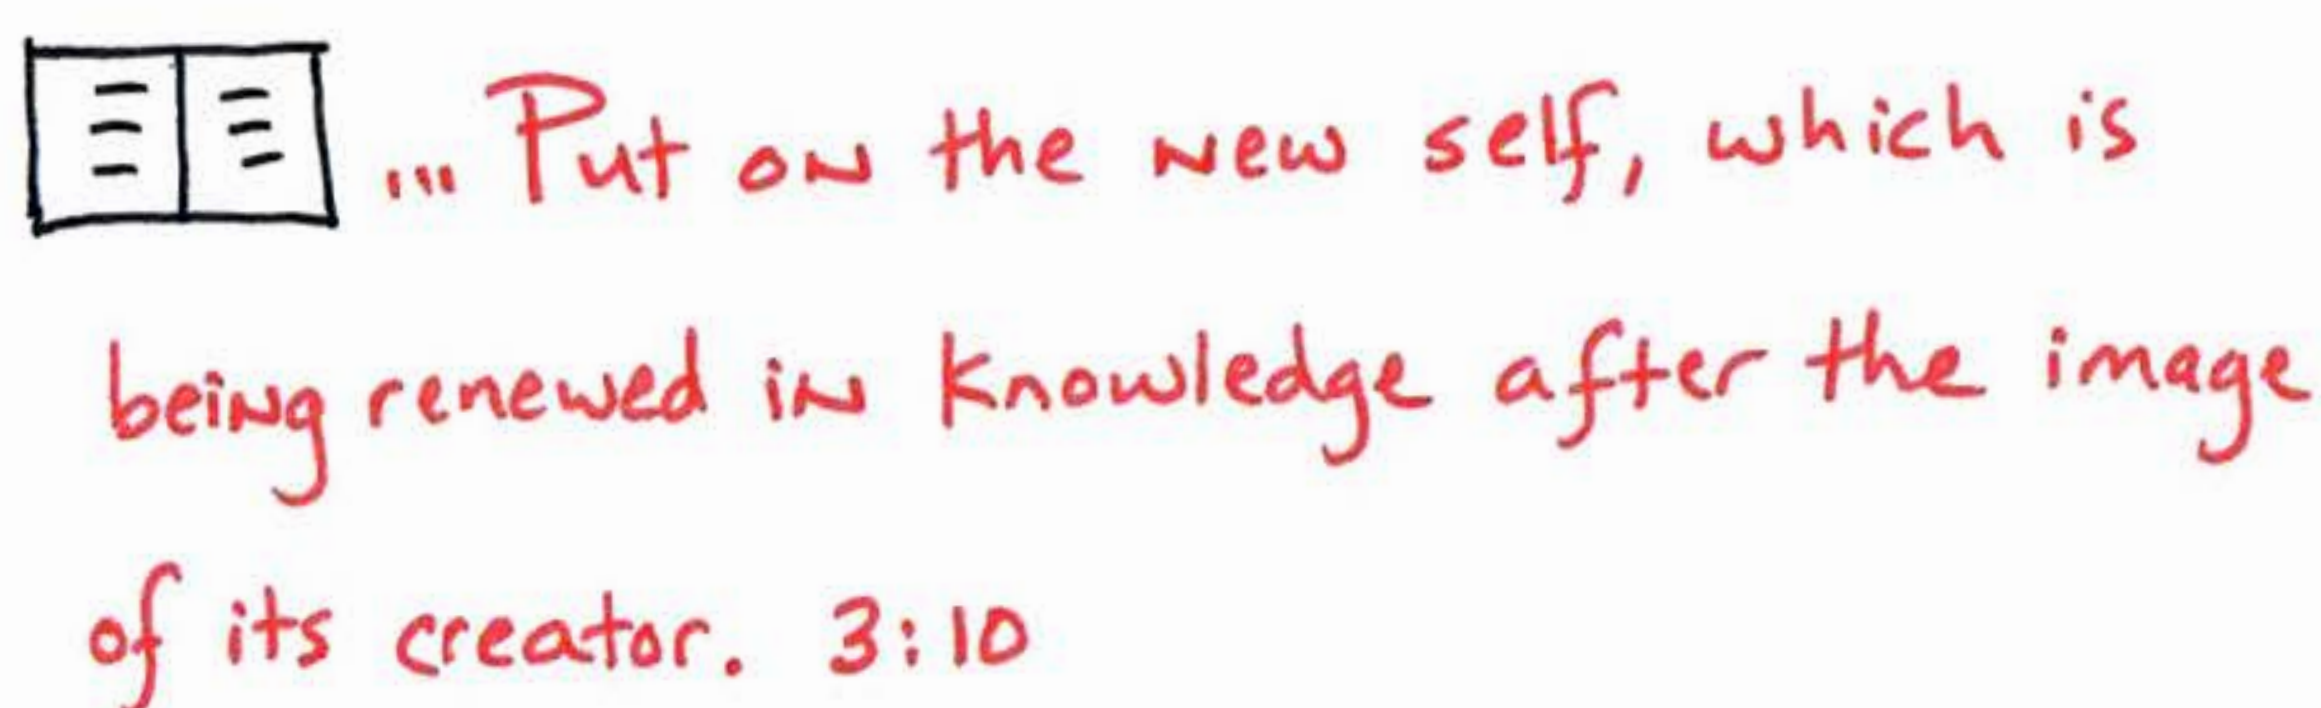 ... Put on the new self, which is
being renewed in knowledge after the image
of its creator. 3:10